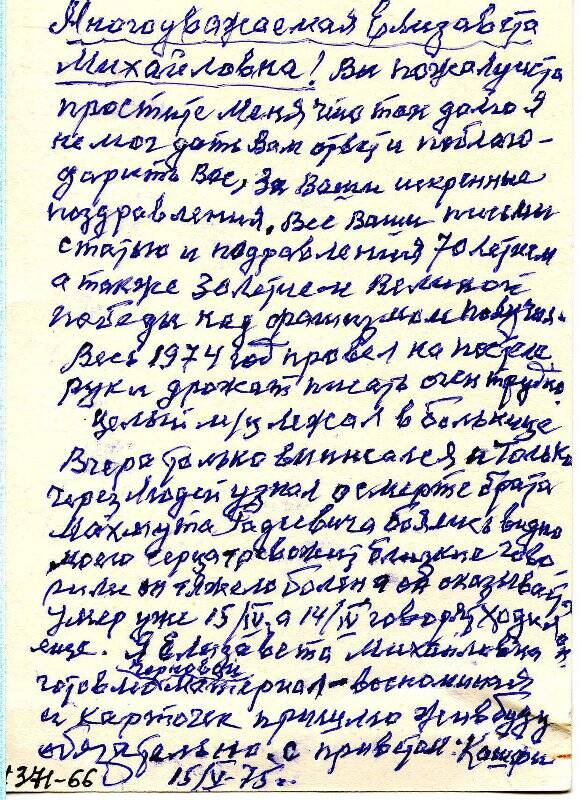 Многоуважаемая Елизавета
Михайловна! Вы пожалуйста
простите меня что так долго я
не мог дать Вам ответ и поблаго-
дарить Вас, за Ваши искренные
поздравления. Все Ваши письми
статью и поздравления 70 летием
а также 30 летием Великой
победы над фашизмом получил.
Весь 1974 год провел на постеле
руки дрожат писать очен трудно.
целый м/ц лежал в больнице
Вчера только выписался и только
через людей узнал о смерте брата
Махмута Гадиевича боялись видно
моего серца тревожит близкие гово
рили он тяжело болен а он оказывает
умер уже 15/IV, а 14/IV говорят ходил
еще. Я Елизавета Михайловна
черновой
готовлю материал - воспоминия
и карточек пришлю жив буду
обязательно, с приветом Кашфи
1371-66 15/V-75 г.